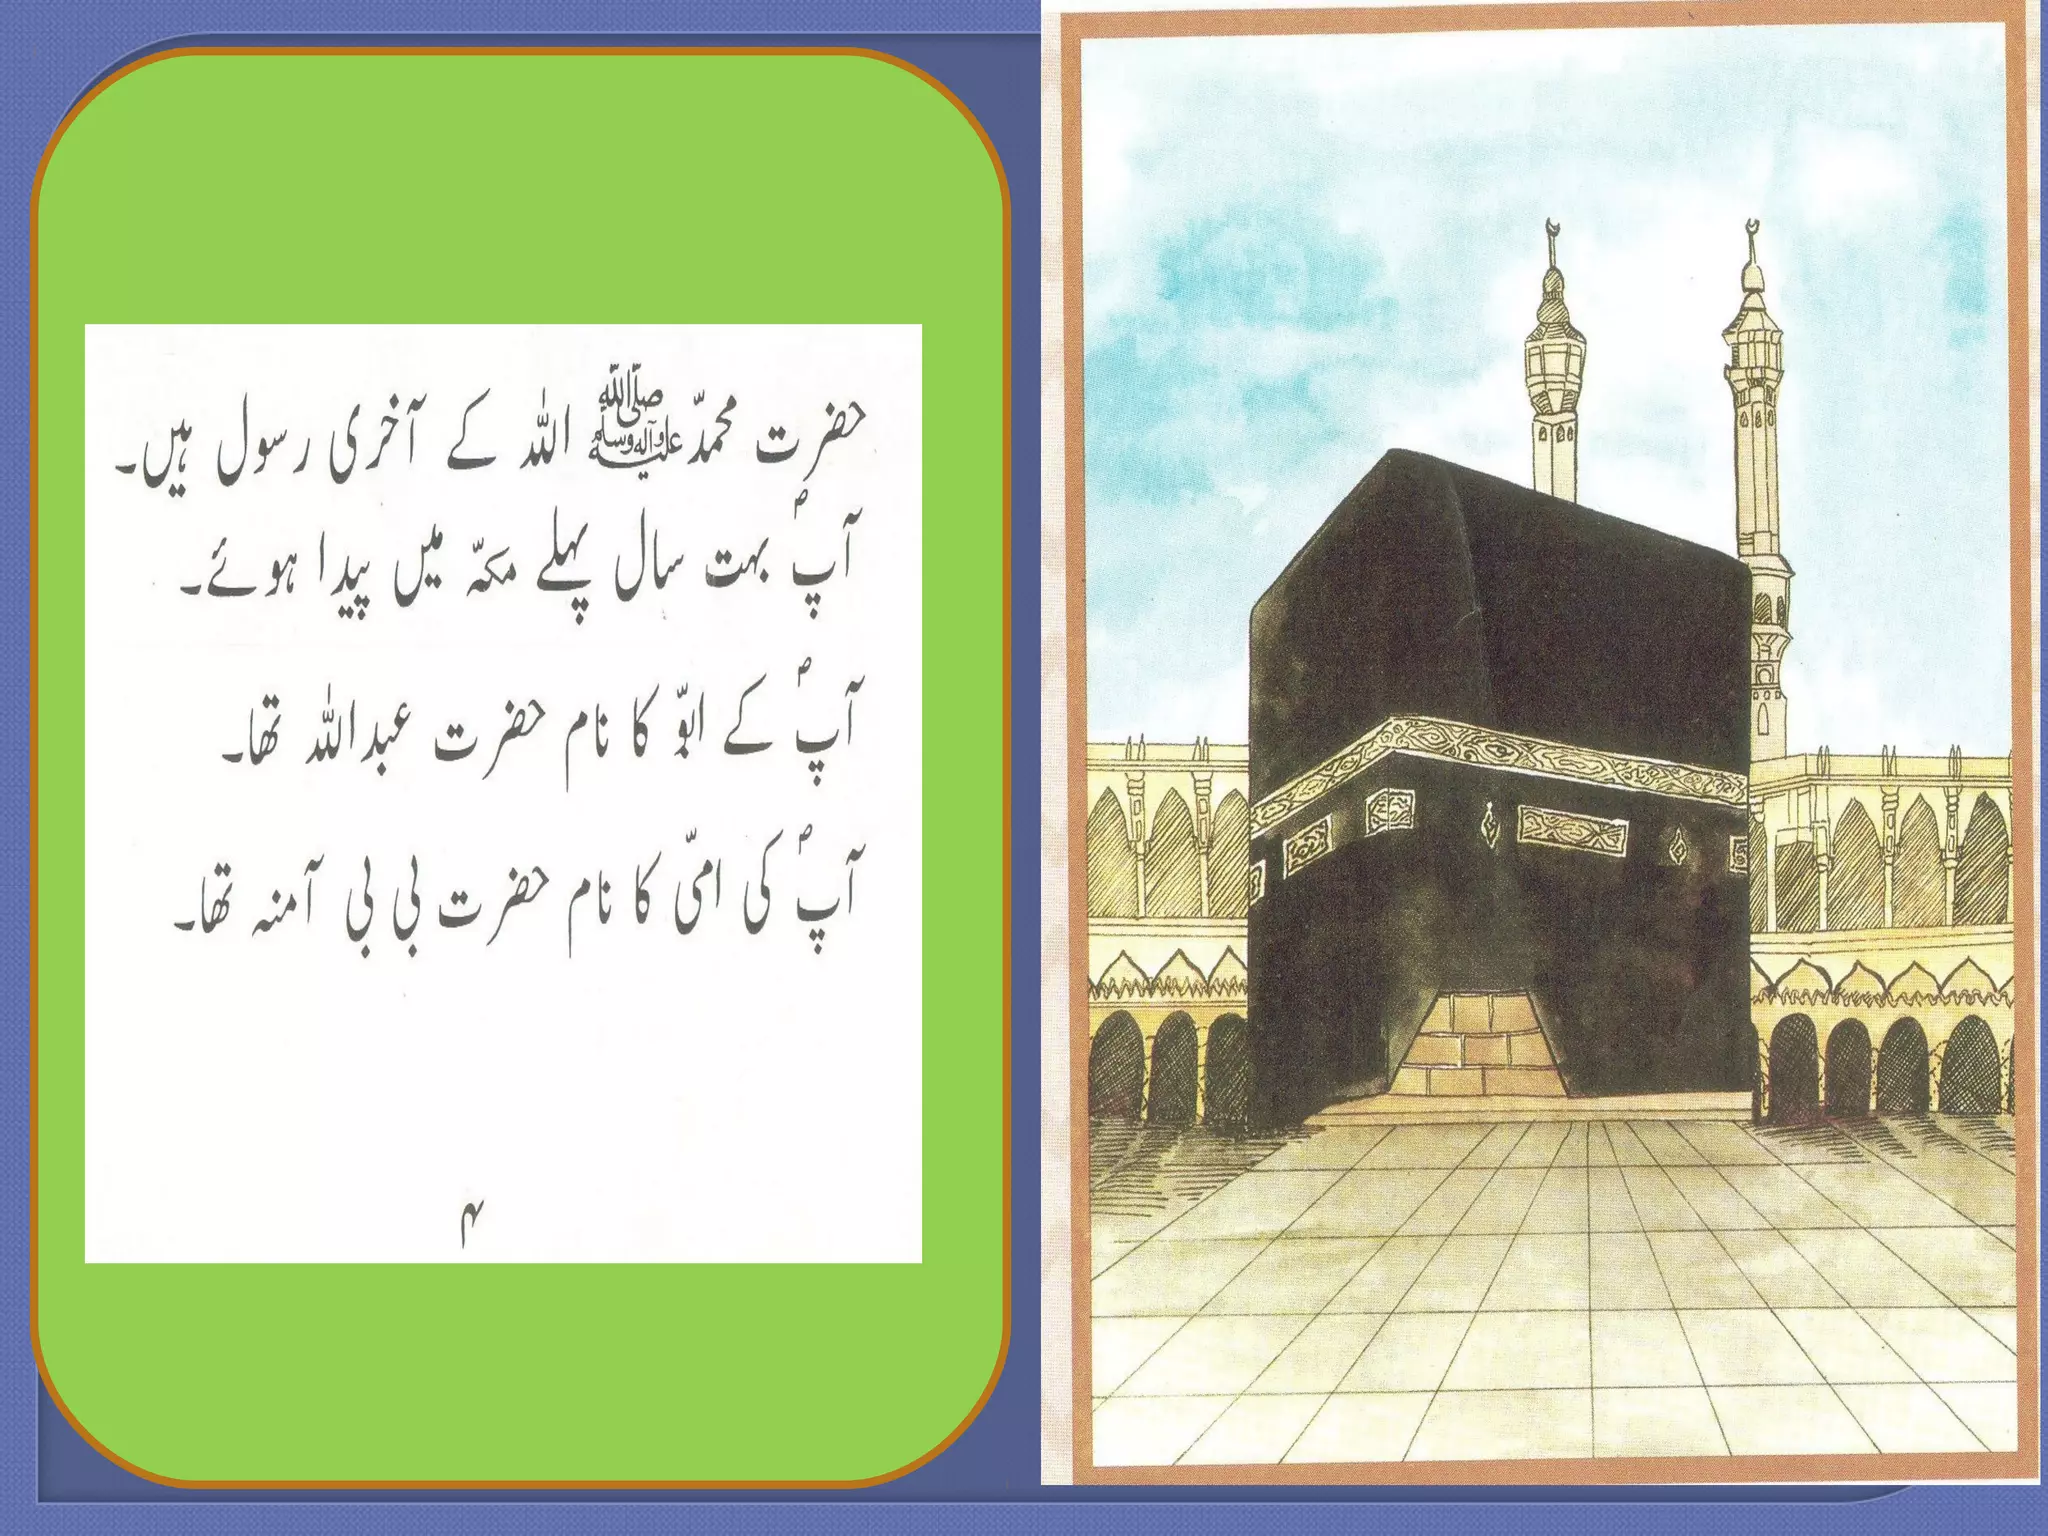 حضرت محمدّ ﷺ اللہ کے آخری رسول ہیں۔
آپؐ بہت سال پہلے مکہّ میں پیدا ہوئے۔
آپؐ کے ابوّ کا نام حضرت عبداللہ تھا۔
آپؐ کی امیّ کا نام حضرت بی بی آمنہ تھا۔
۴